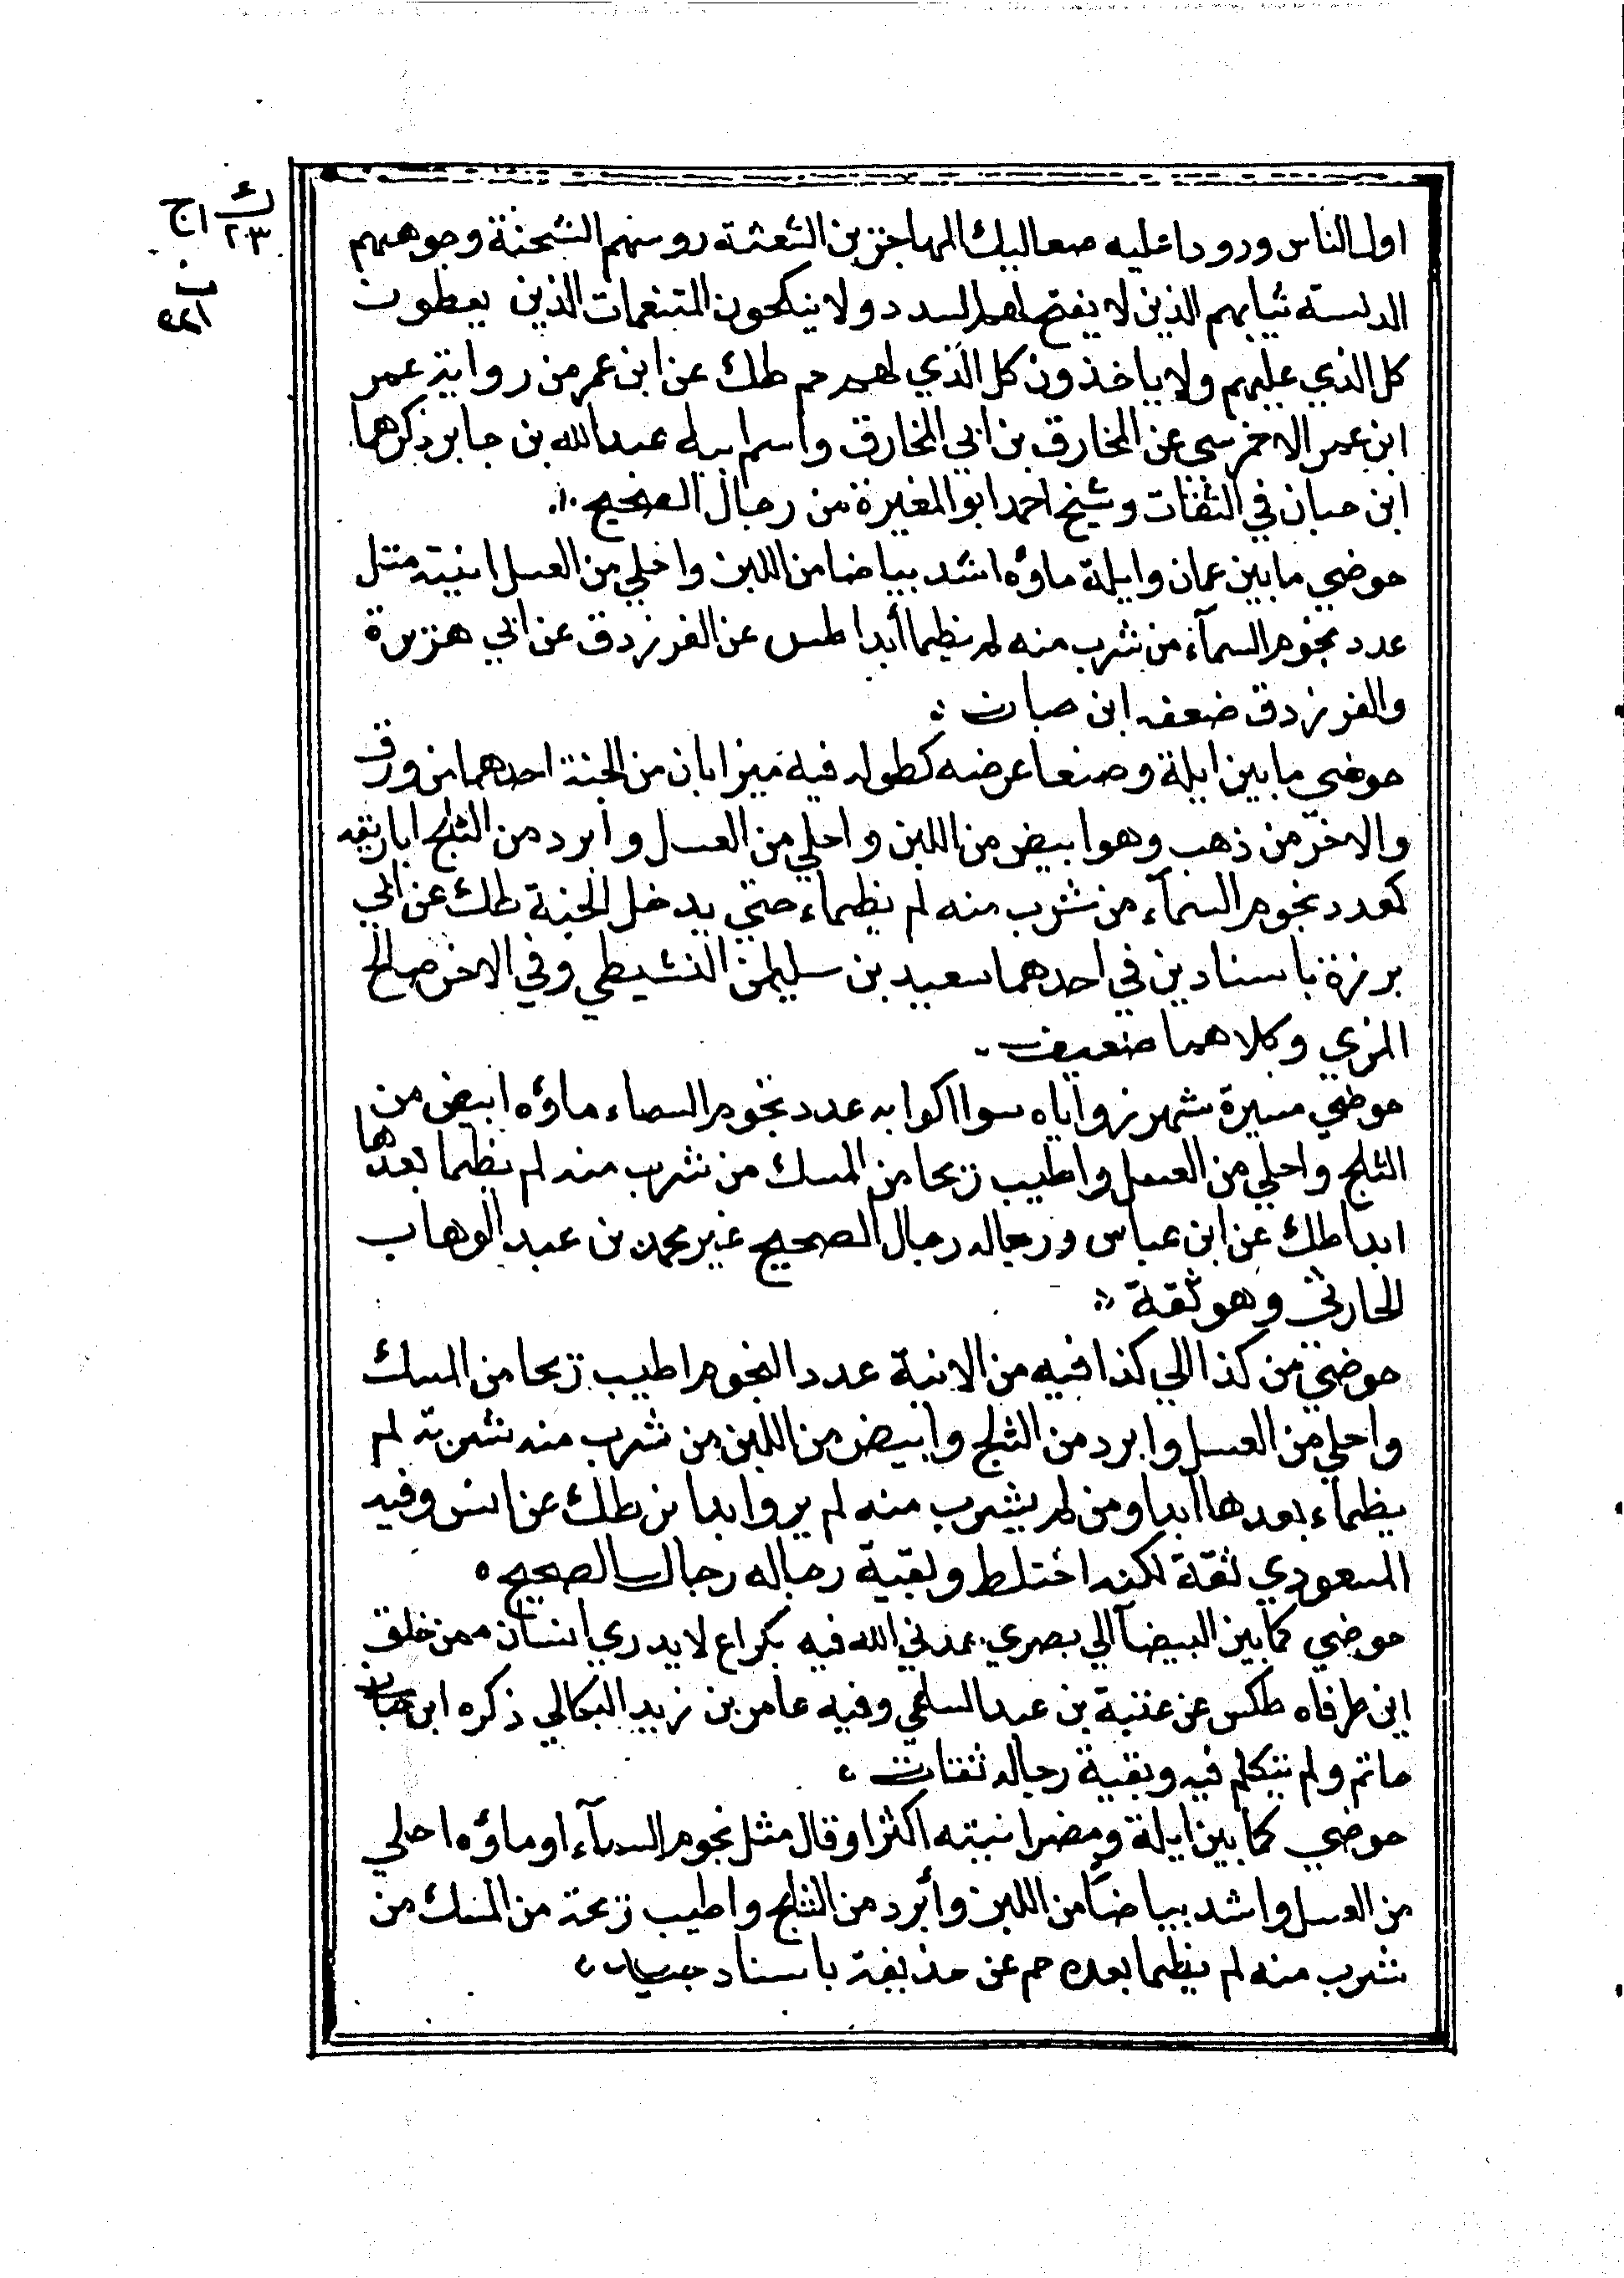 اول الناس ورودا عليه صعاليك المهاجرين الشعثة روسهم الشحنة وجوههم
الدنسة ثيابهم الذين لا يفتح لهم السدد ولا ينكحون المتنعمات الذين يعطون
كل الذي عليهم ولا ياخذون كل الذي لهم حم طك عن ابن عمر من رواية عمر
ابن عمر الاخرسي عن المخارق بن ابي المخارق واسم ابيه عبد الله بن جابر ذكرهما
ابن حبان في الثقات وشيخ احمد ابو المغيرة من رجال الصحيح
حوضي ما بين عمان وايلة ماؤه اشد بياضا من اللبن واحلي من العسل انيته مثل
عدد نجوم السمآء من شرب منه لم يظما أبدا طس عن الفرزدق عن ابي هريرة
والفرزدق ضعفه ابن حبان
حوضي ما بين ايلة وصنعا عرضه كطوله فيه ميزابان من الجنة احدهما من ورق
والاخر من ذهب وهو ابيض من اللبن واحلي من العسل وابرد من الثلج اباريقه
كعدد نجوم السمآء من شرب منه لم يظماء حتي يدخل الجنة طك عن ابي
برزة باسنادين في احدهما سعيد بن سليمن النشيطي وفي الاخر صالح
المري وكلاهما ضعيف
حوضي مسيرة شهر زواياه سوا اكوابه عدد نجوم السماء ماؤه ابيض من
الثلج واحلي من العسل واطيب ريحا من المسك من شرب منه لم يظما بعدها
ابدا طك عن ابن عباس ورجاله رجال الصحيح غير محمد بن عبد الوهاب
الحارثي وهو ثقة
حوضي من كذا الي كذا فيه من الانية عدد النجوم اطيب ريحا من المسك
واحلي من العسل وابرد من الثلج وابيض من اللبن من شرب منه شربة لم
يظماء بعدها ابدا ومن لم يشرب منه لم يروا ابدا بز طك عن انس وفيه
المسعودي ثقة لكنه اختلط وبقية رجاله رجال الصحيح
حوضي كما بين البيضآ الي بصري يمدني الله فيه بكراع لا يدري انسان ممن خلق
اين طرفاه طكس عن عتبة بن عبد السلمي وفيه عامر بن زيد البكالي ذكره ابن
حاتم ولم يتكلم فيه وبقية رجاله ثقات
حوضي كما بين ايلة ومضر انيته اكثر او قال مثل نجوم السمآء او ماؤه احلي
من العسل واشد بياضا من اللبن وأبرد من الثلج واطيب ريحة من المسك من
شرب منه لم يظما بعده حم عن حذيفة باسناد